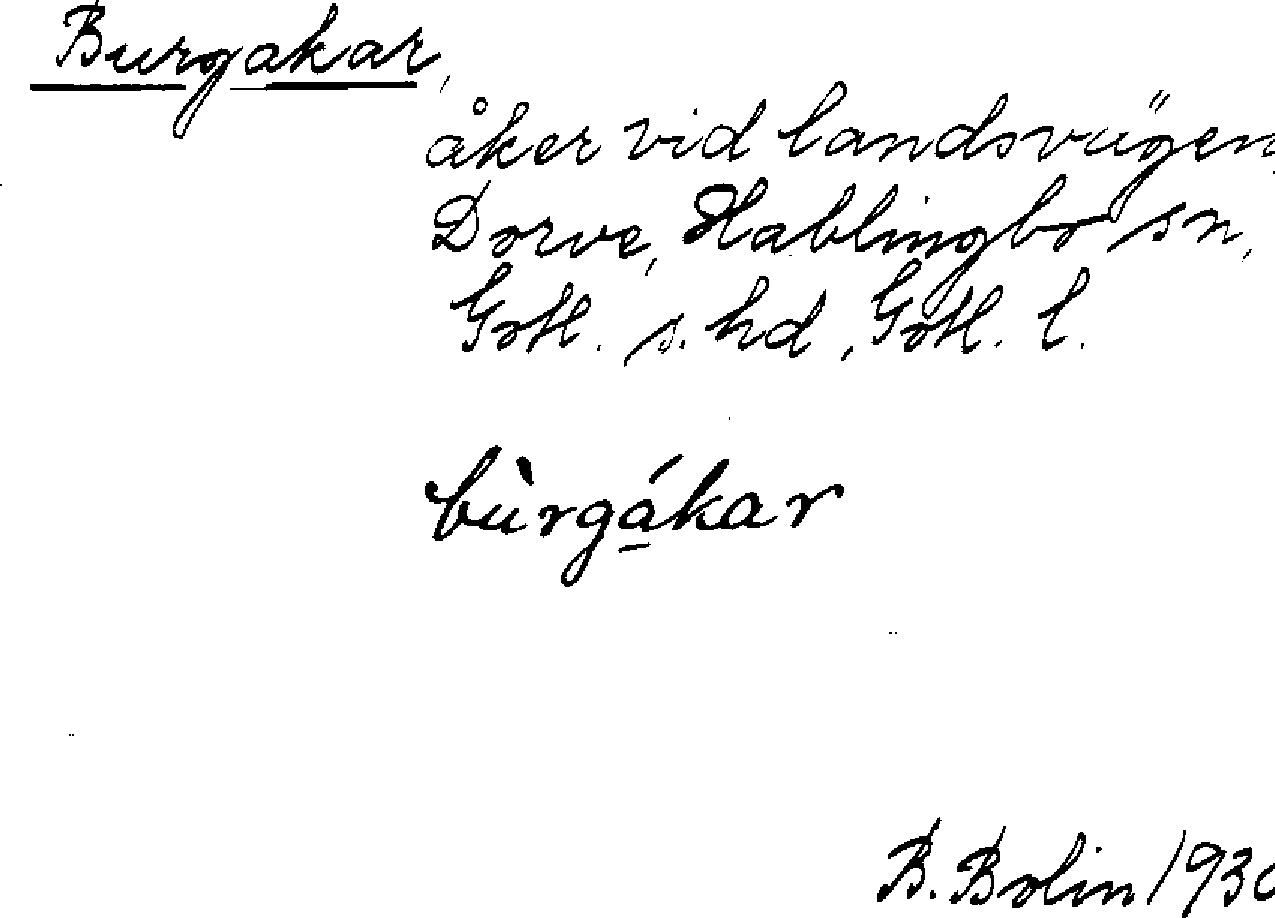 Burgakar,
åker vid landsvägen,
Dorve, Hablingbo sn,
Gotl. s. hd, Gotl. l.
bùrgá̱kar
B. Bolin 1930